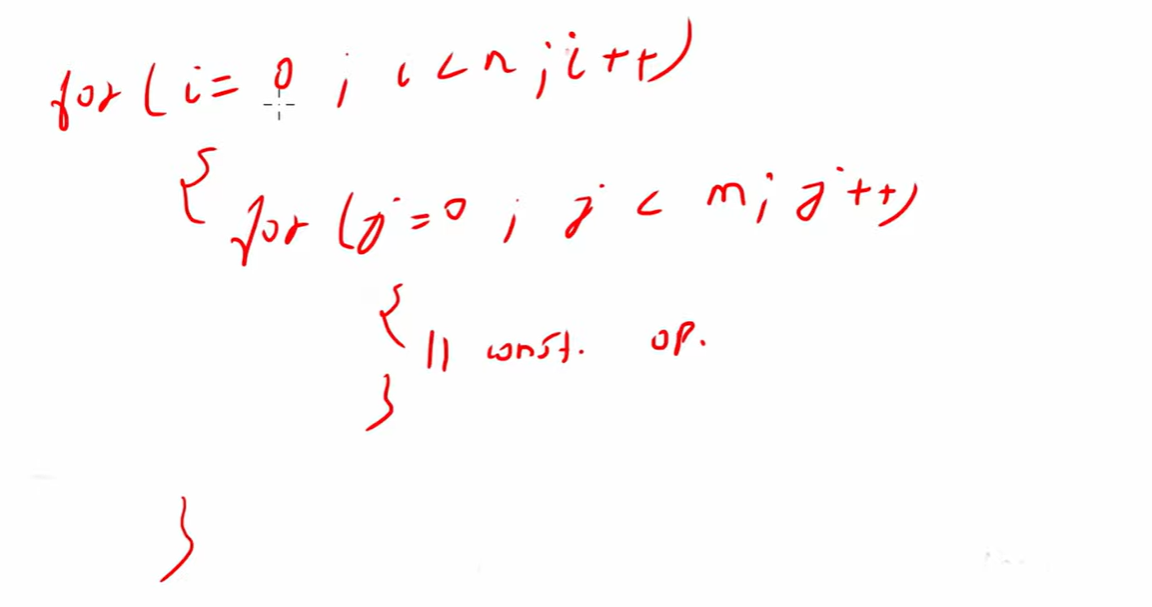 for ( i = 0 ; i < n ; i ++ )
{
for ( j = 0 ; j < m ; j ++ )
{
// const. op.
}
}